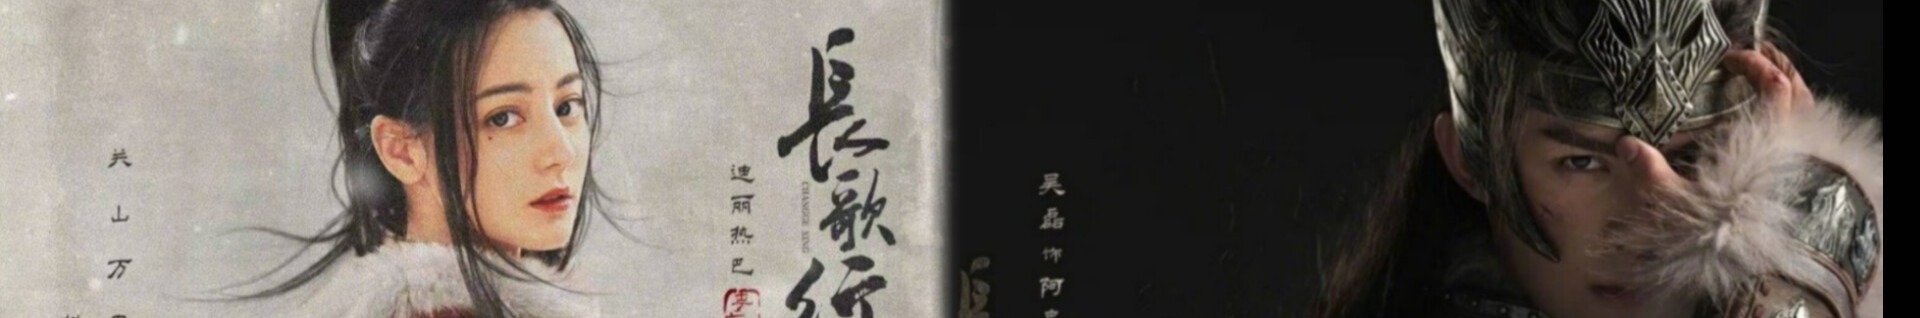 关山万
迪丽热巴
李
長歌行
CHANGGE XING
長
吴磊饰阿